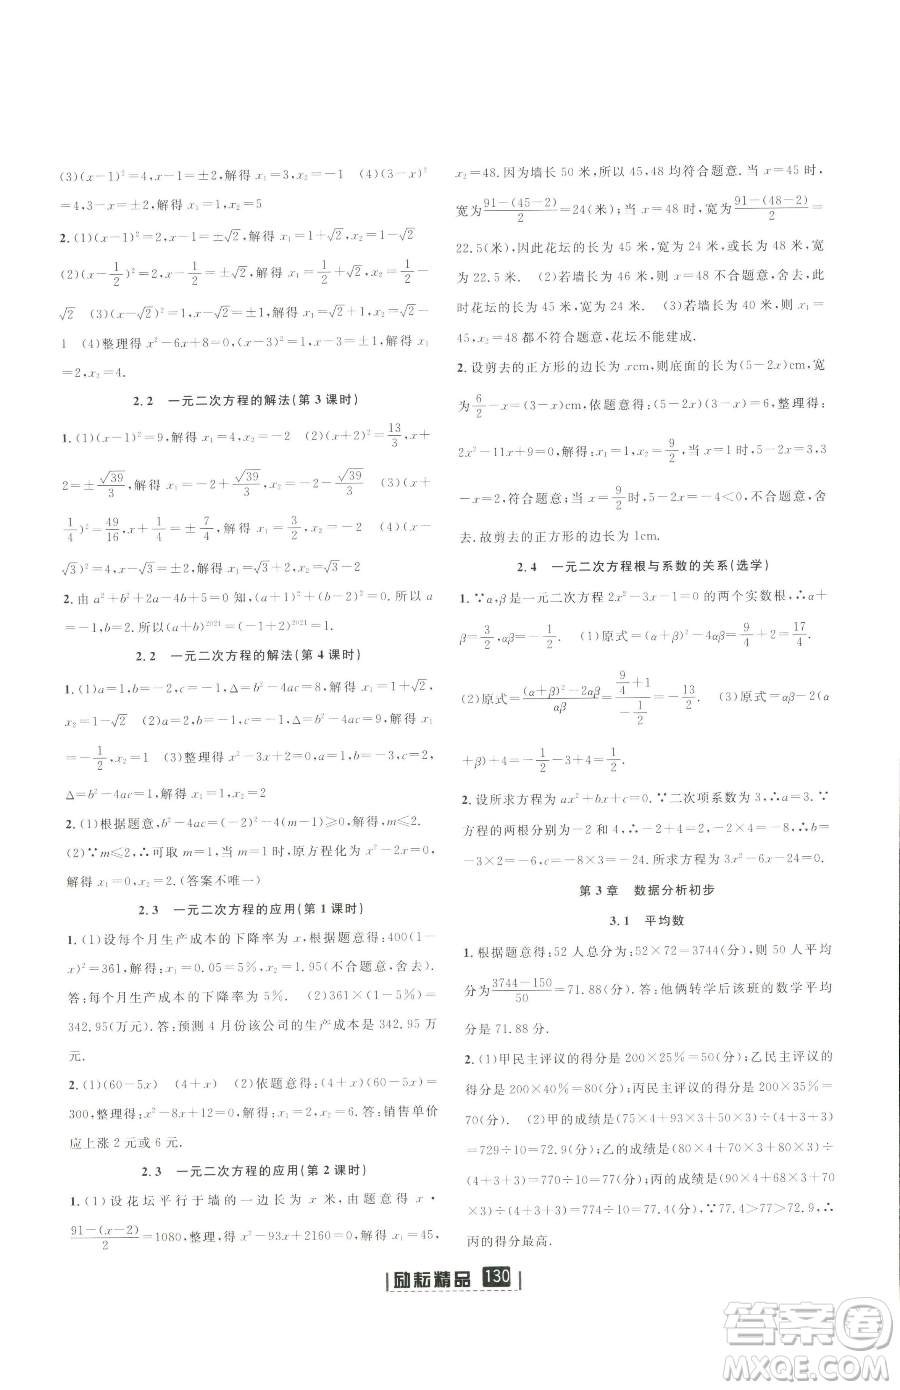 (3)(x-1)²=4,x-1=±2,解得 x₁=3,x₂=-1 (4)(3-x)²
=4,3-x=±2,解得 x₁=1,x₂=5
2. (1)(x-1)²=2,x-1=±√2,解得 x₁=1+√2,x₂=1-√2
(2)(x-1/2)²=2,x-1/2=±√2,解得 x₁=1/2+√2,x₂=1/2-
√2 (3)(x-√2)²=1,x-√2=±1,解得 x₁=√2+1,x₂=√2-
1 (4)整理得 x²-6x+8=0,(x-3)²=1,x-3=±1,解得 x₁
=2,x₂=4.
2.2 一元二次方程的解法(第 3 课时)
1. (1)(x-1)²=9,解得 x₁=4,x₂=-2 (2)(x+2)²=13/3,x+
2=±√39/3,解得 x₁=-2+√39/3,x₂=-2-√39/3 (3)(x+
1/4)²=49/16,x+1/4=±7/4,解得 x₁=3/2,x₂=-2 (4)(x-
√3)²=2,x-√3=±√2,解得 x₁=√3+√2,x₂=√3-√2
2. 由 a²+b²+2a-4b+5=0,得(a+1)²+(b-2)²=0.所以 a
=-1,b=2.所以(a+b)²⁰²¹=(-1+2)²⁰²¹=1.
2.2 一元二次方程的解法(第 4 课时)
1. (1)a=1,b=-2,c=-1,Δ=b²-4ac=8,解得 x₁=1+√2,
x₂=1-√2 (2)a=2,b=-1,c=-1,Δ=b²-4ac=9,解得 x₁
=-1/2,x₂=1 (3)整理得 x²-3x+2=0,a=1,b=-3,c=2,
Δ=b²-4ac=1,解得 x₁=1,x₂=2
2. (1)根据题意,b²-4ac=(-2)²-4(m-1)≥0,解得 m≤2.
(2)∵m≤2,∴可取 m=1 时,原方程化为 x²-2x=0,
解得 x₁=0,x₂=2.(答案不唯一)
2.3 一元二次方程的应用(第 1 课时)
1. (1)设每个月生产成本的下降率为 x,根据题意得:400(1-
x)²=361,解得:x₁=0.05=5%,x₂=1.95(不合题意,舍去).
答:每个月生产成本的下降率为 5%. (2)361×(1-5%)=
342.95(万元).答:预测 4 月份该公司的生产成本是 342.95 万
元.
2. (1)(60-5x) (4+x) (2)依题意得:(60-5x)(4+x)=
300,整理得:x²-8x+12=0,解得:x₁=2,x₂=6.答:销售单价
应上涨 2 元或 6 元.
2.3 一元二次方程的应用(第 2 课时)
1. (1)设花坛平行于墙的一边长为 x 米,由题意得 x·
91-(x-2)/2=1080,整理,得 x²-93x+2160=0,解得 x₁=45,
x₂=48.因为墙长 50 米,所以 45,48 均符合题意.当 x=45 时,
宽为91-(45-2)/2=24(米);当 x=48 时,宽为91-(48-2)/2=
22.5(米),因此花坛的长为 45 米,宽为 24 米;或长为 48 米,
宽为 22.5 米. (2)若墙长为 46 米,则 x=48 不合题意,舍去,此
时花坛的长为 45 米,宽为 24 米. (3)若墙长为 40 米,则 x₁=
45,x₂=48 都不符合题意,花坛不能建成.
2. 设剪去的正方形的边长为 xcm,则底面的长为(5-2x)cm,宽
为6/2-x=(3-x)cm,依题意得:(5-2x)(3-x)=6,整理得:
2x²-11x+9=0;解得:x₁=1,x₂=9/2.当 x=1 时,5-2x=3,3
-x=2,符合题意;当 x=9/2时,5-2x=-4<0,不合题意,舍
去.故剪去的正方形的边长为 1cm.
2.4 一元二次方程根与系数的关系(选学)
1. ∵α,β是一元二次方程 2x²-3x-1=0 的两个实数根,∴α+
β=3/2,αβ=-1/2. (1)原式=(α+β)²-4αβ=9/4+2=17/4.
(2)原式=(α+β)²-2αβ/αβ=9/4+1/-1/2=-13/2. (3)原式=αβ-2(α
+β)+4=-1/2-3+4=1/2.
2. 设所求方程为 ax²+bx+c=0.∵二次项系数为 3,∴a=3.∵
方程的两根分别为-2 和 4,∴-2+4=2,-2×4=-8,∴b=
-3×2=-6,c=-8×3=-24.所求方程为 3x²-6x-24=0.
第 3 章 数据分析初步
3.1 平均数
1. 根据题意得:52 人总分为:52×72=3744(分),则 50 人平均
分是3744-150/50=71.88(分).答:他俩转学后该班的数学平均
分是 71.88 分.
2. (1)甲民主评议的得分是 200×25%=50(分);乙民主评议的
得分是 200×40%=80(分);丙民主评议的得分是 200×35%=
70(分). (2)甲的成绩是(75×4+93×3+50×3)÷(4+3+3)
=729÷10=72.9(分);乙的成绩是(80×4+70×3+80×3)÷
(4+3+3)=770÷10=77(分);丙的成绩是(90×4+68×3+70
×3)÷(4+3+3)=774÷10=77.4(分),∵77.4>77>72.9,∴
丙的得分最高.
励耘精品 130
答案圈
MXQE.COM